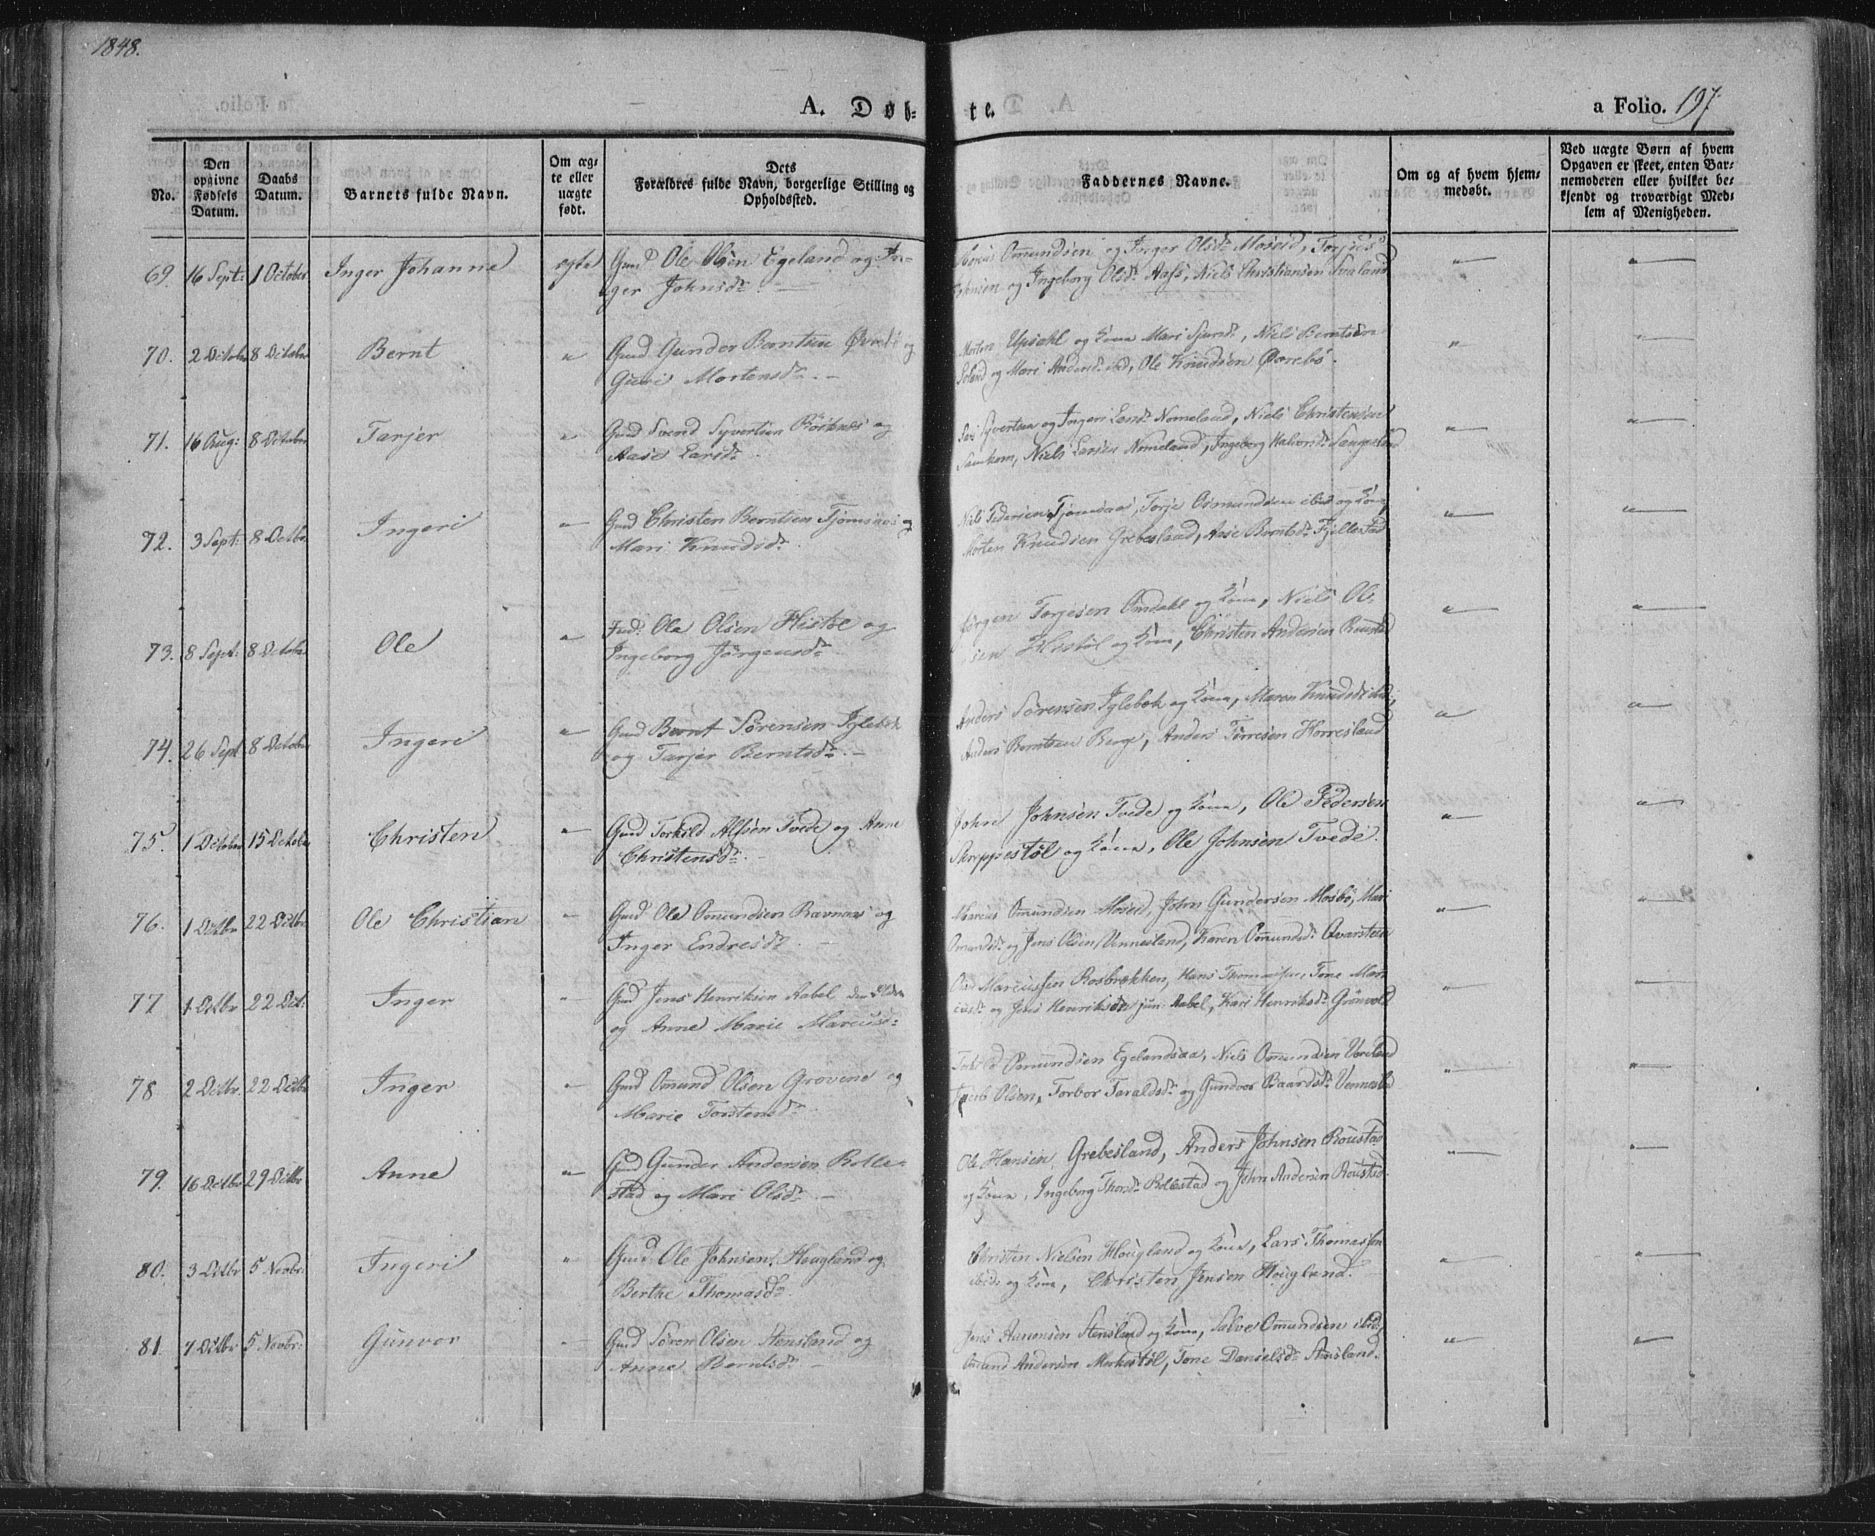 1848.
A. Døb-
te.
a Folio. 197.
No.
Den opgivne Fødsels Datum.
Daabs Datum.
Barnets fulde Navn.
Om ægte eller uægte født.
Dets Forældres fulde Navn, borgerlige Stilling og Opholdssted.
Faddernes Navne.
Om og af hvem hjemmedøbt.
Ved uægte Børn af hvem Opgaven er skeet, enten Barnemoderen eller hvilket bekjendt og troværdigt Medlem af Menigheden.
69. 16 Sept: 1 October Inger Johanne ægte Gmd Ole Olsen Egeland og In-
ger Johnsdr. —
Omundsen og Inger Olsdr Moseid, Torjus
Johnsen og Ingeborg Olsdr Aass, Niels Christiansen Svaland
70. 2 October 8 October Bernt " Gmd Gunder Berntsen Øvrebø og
Guri Mortensdr. —
Morten Upsahl og Kone Mari Sjursdr, Niels Berntsen
og Mari Andersdr ibid, Ole Knudsen Øvrebø.
71. 16 Aug: 8 October Tarjer " Gmd Svend Syvertsen Röiknes og
Aase Larsdr.
Syvertsen og Ingeri Larsdr Nomeland, Niels Christensen
Samkom, Niels Larsen Nomeland, Ingeborg Halvorsdr Langeland
72. 3 Sept: 8 Octbr. Ingeri " Gmd Christen Berntsen Tjomsaas og
Mari Knudsdr.
Niels Pedersen Tjomsaas, Torje Osmundsen ibid og Kone,
Morten Knudsen Grebesland, Aase Berntsdr Fjellestad
73. 8 Sept: 8 October Ole " Ind: Ole Olsen Histøl og
Ingeborg Jörgensdr
Jörgen Torjesen Omdahl og Kone, Niels Ol-
sen Histøl og Kone, Christen Andersen Roustad
74. 26 Sept 8 October Ingeri " Gmd Bernt Sörensen Iglebæk
og Tarjer Berntsdr. —
Anders Sörensen Iglebæk og Kone, Maren Knudsdr ibid,
Anders Berntsen Berge, Anders Törresen Horrisland
75. 1 October 15 October Christen " Gmd Torkild Alfsen Tvede og Anne
Christensdr. —
John Johnsen Tvede og Kone, Ole Pedersen
Skreppestöl og Kone, Ole Johnsen Tvede.
76. 1 Octbr 22 Octbr. Ole Christian " Gmd Ole Omundsen Ravnaas og
Inger Endresdr. —
Marcus Omundsen Moseid, John Gundersen Mosbö, Mari
Omundsdr og Jens Olsen Vennesland, Karen Omundsdr Qvarstein
77 1 Octbr 22 Oct: Inger " Gmd Jens Henriksen Aabel den Eldre
og Anne Marie Marcusdr
Ole Marcussen Rosbækken, Hans Thomassen, Tone Mar-
cusdr og Jens Henriksen jun: Aabel, Kari Henriksdr Grönvold
78 2 Octbr. 22 Octbr Inger " Gmd Omund Olsen Grovene og
Marie Torstensdr.
Omundsen Egelandsaa, Niels Omundsen
Jacob Olsen, Torbor Taraldsdr og Gundvor Baardsdr Vennesland
79. 16 Octbr 29 Octbr Anne " Gmd Gunder Andersen Rolle-
stad og Mari Olsdr. —
Ole Hansen Grebesland, Anders Johnsen Roustad
og Kone, Ingeborg Thorsdr Rollestad og John Andersen Roustad.
80. 3 Octbr 5 Novbr: Ingeri " Gmd. Ole Johnsen Hougland og
Berthe Thomasdr
Christen Nielsen Hougland og Kone, Lars Thomassen
ibid og Kone, Christen Jensen Hougland.
81. 7 Octbr 5 Novbr: Gunvor — Gmd Sören Olsen Stensland og
Anne Berntsdr —
Jens Aanonsen Stensland og Kone, Salve Omundsen ibid,
Omund Andersen Merkestöl, Tone Danielsdr Stensland.